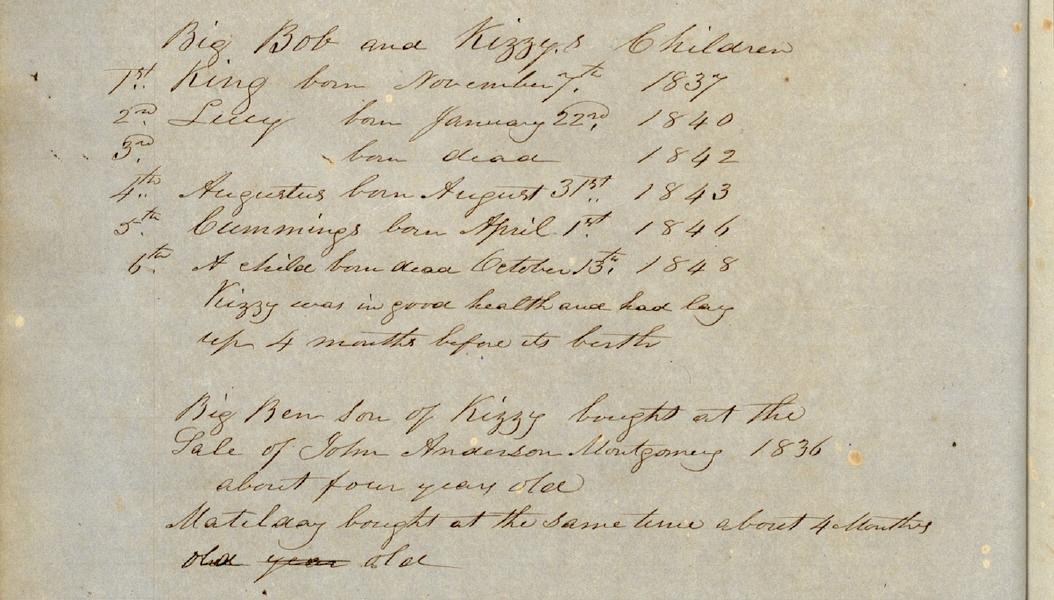 Big Bob and Kizzy,s Children
1st King born November 7th. 1837
2nd Lucy born January 22nd, 1840
3rd born dead 1842
4th Augustus born August 31st 1843
5th Cummings born April 1st 1846
6th A child born dead October 13th, 1848
Kizzy was in good health and had lay
up 4 months before its birth
Big Ben Son of Kizzy bought at the
Sale of John Anderson Montgomery 1836
about four years old
Matilday bought at the same time about 4 Months
old year old